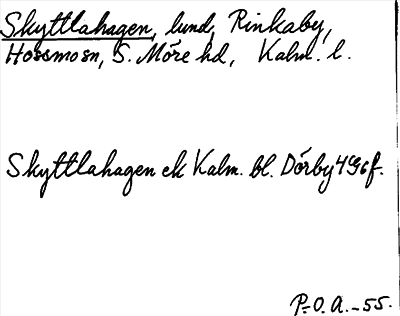 Skyttlahagen, lund, Rinkaby,
Hossmosn, S. Möre hd, Kalm. l.
Skyttlahagen ek Kalm. bl. Dörby 4 G6 f.
P-O. A. -55.